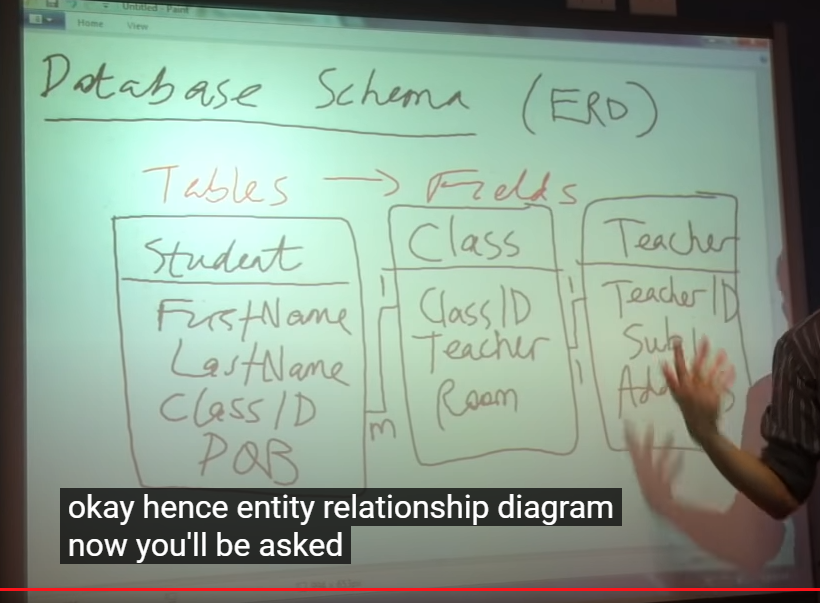 Untitled - Paint
Home View
Database Schema (ERD)
Tables → Fields
Student
FirstName
LastName
ClassID
DOB
1
m
Class
ClassID
Teacher
Room
1
1
Teacher
TeacherID
okay hence entity relationship diagram
now you'll be asked